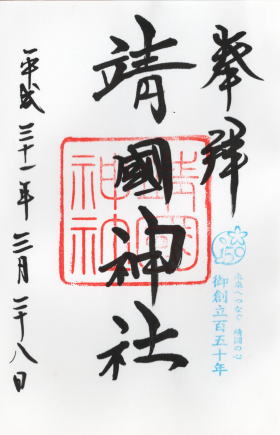 奉拝
靖國神社
靖國神社
150
未来へつなぐ 靖國の心
御創立百五十年
平成三十一年三月二十八日